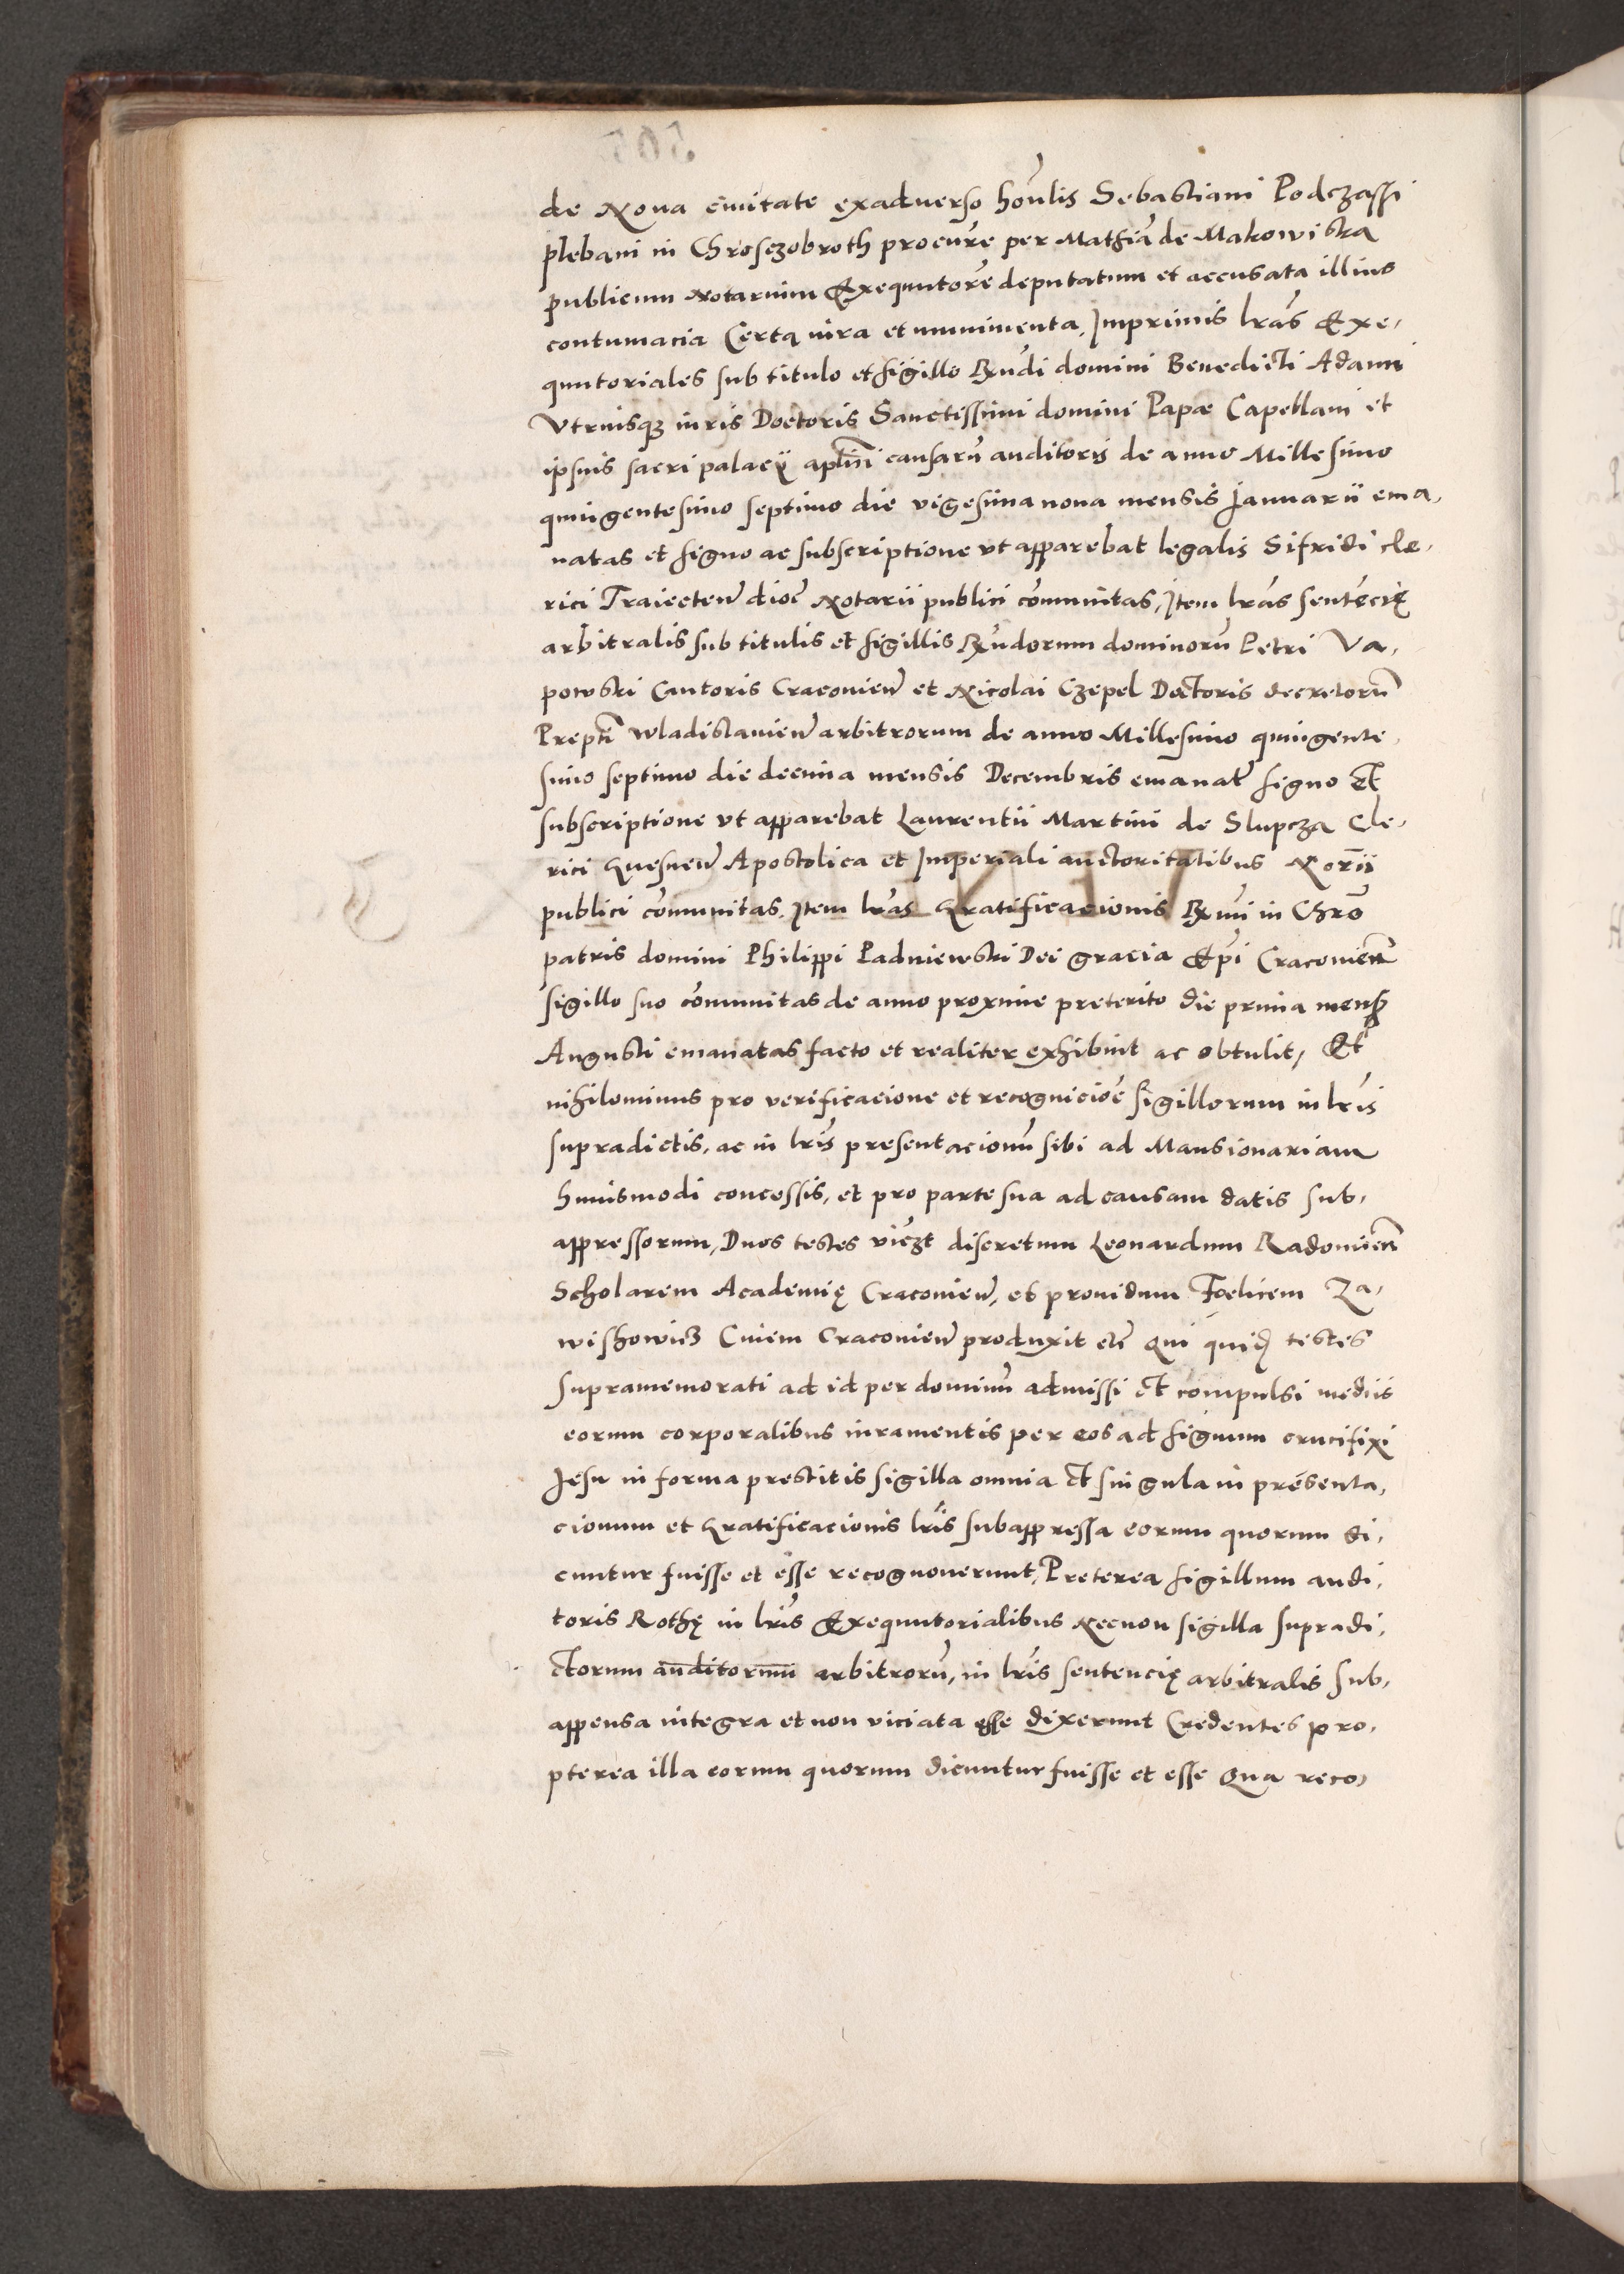 de Noua ciuitate exaduerso hon̄lis Sebastiani Podczassi
plebani in Chrosczobroth procur̄e per Mathiā de Makowiska
publicum Notarium Exequutorē deputatum et accusata illius
contumacia Certa iura et munimenta. Imprimis lrās Exe,
quutoriales sub titulo et sigillo Rṇdi domini Benedicti Adami
Vtriusq₃ iuris Doctoris Sanctissimi domini Papæ Capellani et
ipsius sacri palacÿ aplīci causarū auditoris de anno Millesimo
quingentesimo septimo die vigesima nona mensis Januarii ema,
natas et signo ac subscriptione vt apparebat legalis Sifridi cle,
rici Traiecten̄ dioc̄ Notarii publici com̄unitas, Item lrās sentēcię
arbitralis sub titulis et sigillis Rn̄dorum dominorū Petri Va,
powski Cantoris Cracouien̄ et Nicolai Czepel Doctoris decretorū
Prepti̅ Wladislauien̄ arbitrorum de anno Millesimo quingente,
simo septimo die decima mensis Decembris emanat̄ signo Et
subscriptione vt apparebat Laurentii Martini de Slupcza Cle,
rici Gnesnen̄ Apostolica et Imperiali auctoritatibus Norīi
publici com̄unitas. Item lrās Gratificacionis Rmi in Chrō
patris domini Philippi Padniewski Dei gracia Epī Cracouien̄
sigillo suo com̄unitas de anno proxime preterito die prima mens̄
Augusti emanatas facto et realiter exhibuit ac obtulit, Et
nihilominus pro verificacione et recognicioē sigillorum in lrīs
supradictis, ac in lrīs presentacionū sibi ad Mansionariam
huiusmodi concessis, et pro parte sua ad causam datis sub,
appressorum, Duos testes viczt discretum Leonardum Radomien̄
Scholarem Academię Cracouien̄, et prouidum Fœlicem Za,
wishowicz Ciuem Cracouien̄ produxit etc̄ Qui quid₃ testes
supramemorati ad id per dominū admissi Et compulsi mediis
eorum corporalibus iuramentis per eos ad signum crucifixi
Jesu in forma prestitis sigilla omnia Et singula in presenta,
cionum et Gratificacionis lrīs subappressa eorum quorum di,
cuntur fuisse et esse recognouerunt, Preterea sigillum audi,
toris Rothę in lrīs Exequutorialibus Necnon sigilla supradi,
ctorum auditorum arbitrorū, in lrīs sentencię arbitralis sub,
appensa integra et non viciata esse dixerunt Credentes pro,
pterea illa eorum quorum dicuntur fuisse et esse Qua reco,